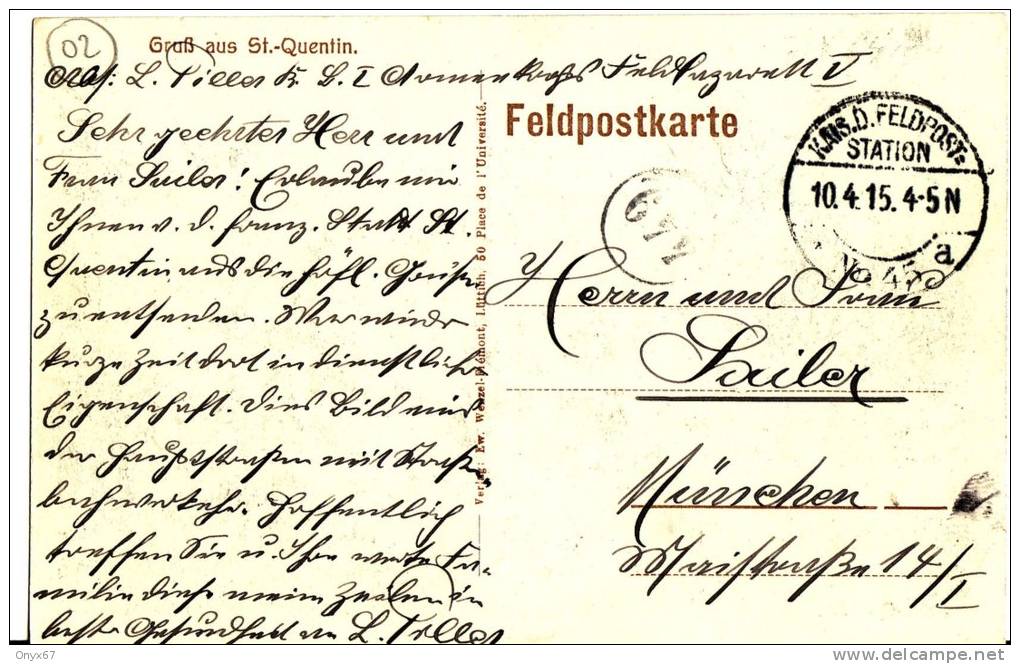 02
Gruß aus St.-Quentin.
Abs: L. Piller K. B. I Armeekorps Feldlazarett V
Sehr geehrter Herr und
Frau Sailer! Erlaube mir
Ihnen v. d. franz. Stadt St.
Quentin aus die höfl. Grüße
zu entsenden. War wieder
kurze Zeit dort in dienstlicher
Eigenschaft. Dies Bild
der Hauptstraßen mit Straßen
bahnverkehr. Hoffentlich
treffen Sie u. Ihre werte Fa-
milie diese meine Zeilen in
bester Gesundheit an L. Piller
Verlag: Ew. Wenzel-Frémont, Lüttich, 50 Place de l'Université.
Feldpostkarte
KAIS. D. FELDPOST-
STATION
10.4.15. 4-5 N
a
No 45
Herrn und Frau
Sailer
München
Maistraße 14/I
Onyx67
delcampe.net